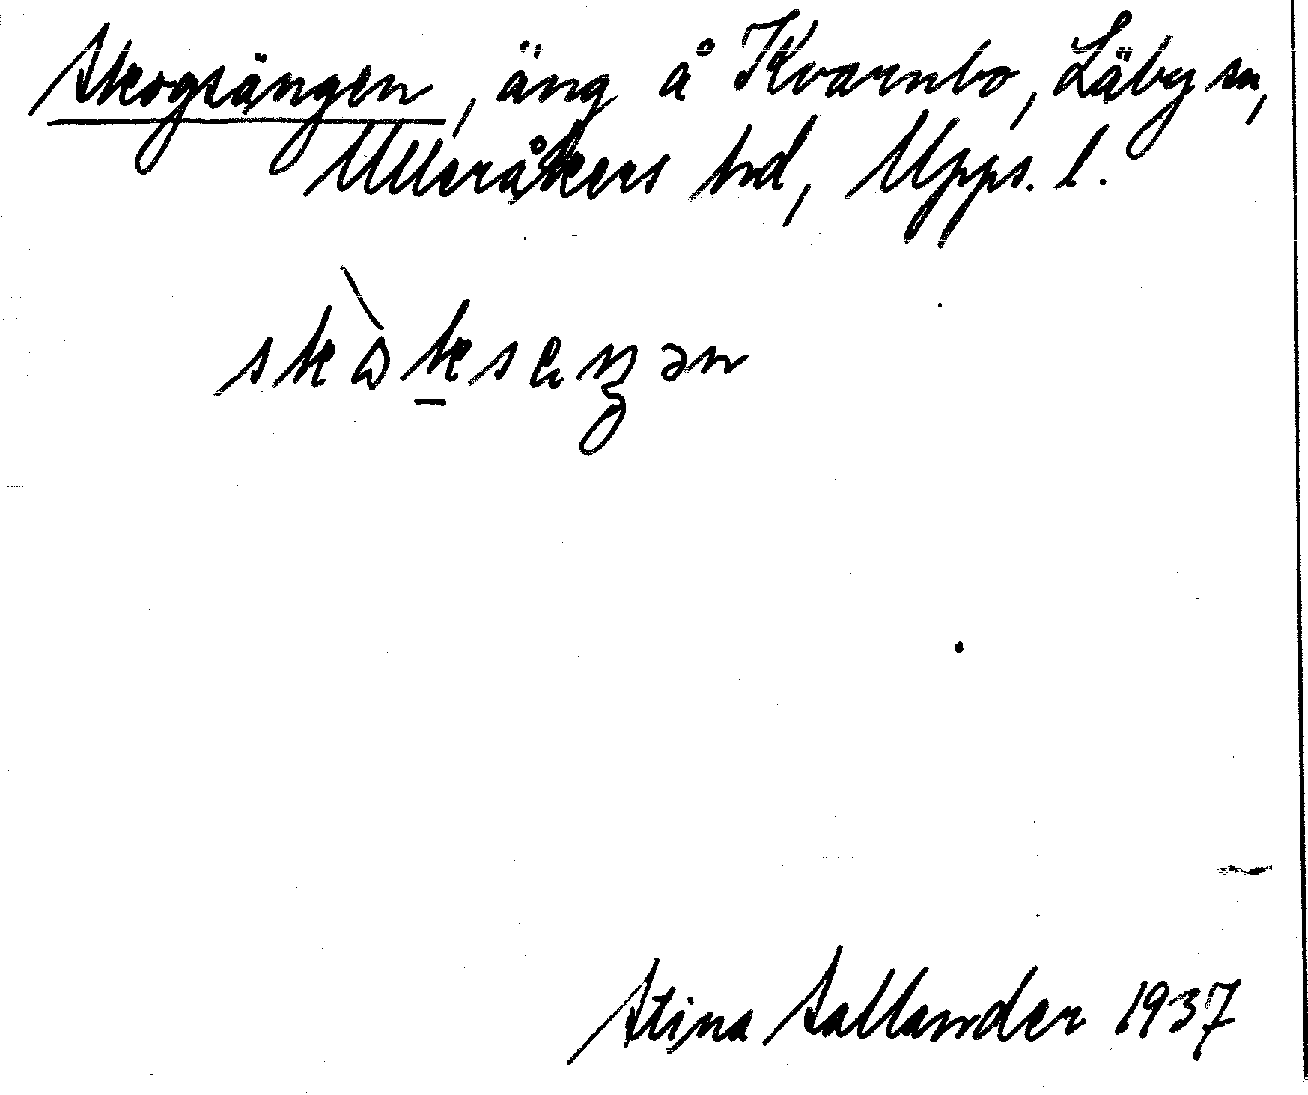 Skogsängen, äng å Kvarnbo, Läby sn,
Ulleråkers hd, Upps. l.
skὼksεŋən
Stina Sallander 1937